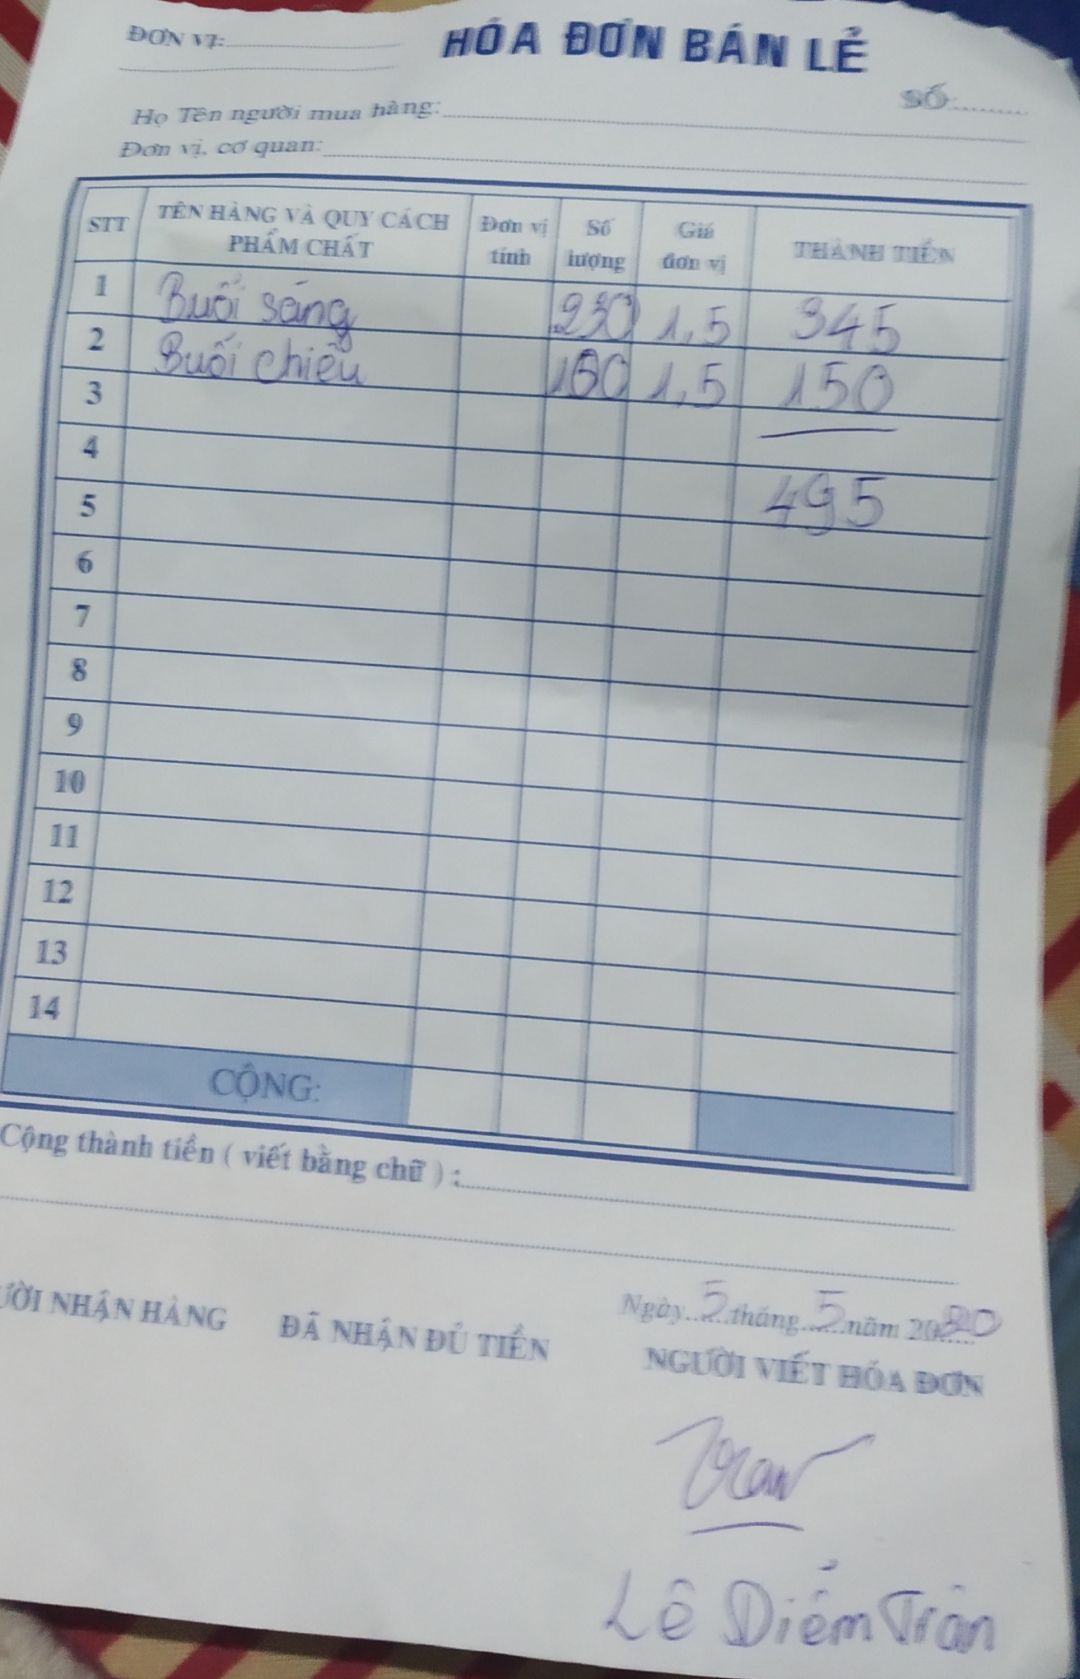 ĐƠN VỊ:
HÓA ĐƠN BÁN LẺ
SỐ:
Họ Tên người mua hàng:
Đơn vị, cơ quan:
STT TÊN HÀNG VÀ QUY CÁCH PHẨM CHẤT Đơn vị tính Số lượng Giá đơn vị THÀNH TIỀN
1 Buổi sáng 230 1,5 345
2 Buổi chiều 100 1,5 150
3
4
5 495
6
7
8
9
10
11
12
13
14
CỘNG:
Cộng thành tiền ( viết bằng chữ ) :
Ngày 5 tháng 5 năm 20
NHẬN HÀNG ĐÃ NHẬN ĐỦ TIỀN NGƯỜI VIẾT HÓA ĐƠN
Lê Diễm Trân